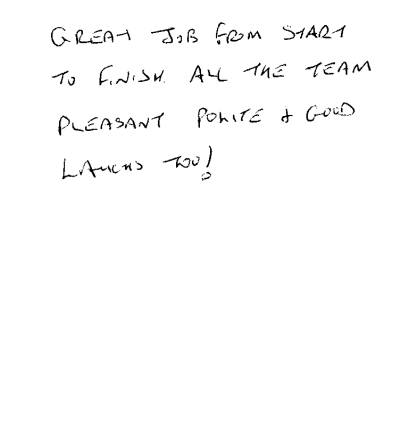 GREAT JOB FROM START
TO FINISH. ALL THE TEAM
PLEASANT POLITE & GOOD
LAUGHS TOO!